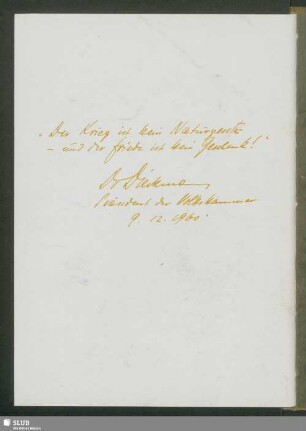 "Der Krieg ist kein Naturgesetz
– und der Friede ist kein Geschenk!"
Dr Dieckmann,
Präsident der Volkskammer
9. 12. 1960.
SLUB
Wir führen Wissen.